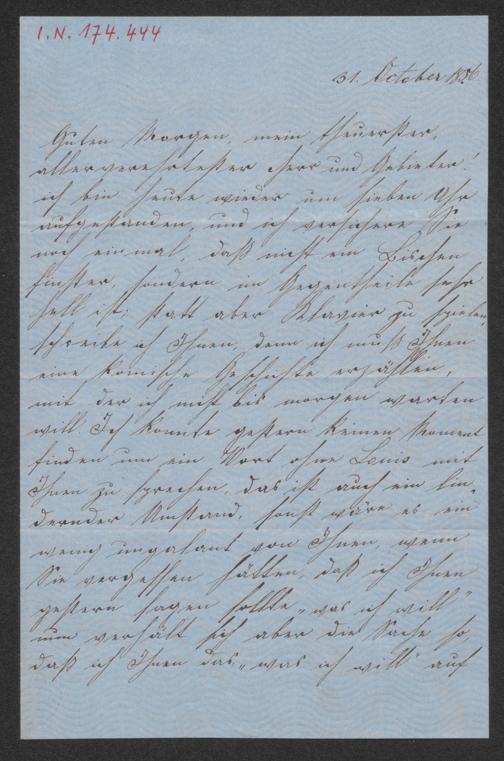 I.N. 174.444
31. October 1856
Guten Morgen, mein theuerster,
allerverehrtester Herr und Gebieter!
ich bin heute wieder um sieben Uhr
aufgestanden, und ich versichere Sie
noch einmal, daß nicht ein Bischen
finster, sondern im Gegentheile sehr
hell ist; statt aber Klavier zu spielen,
schreibe ich Ihnen, denn ich muß Ihnen
eine komische Geschichte erzählen,
mit der ich nicht bis morgen warten
will. Ich konnte gestern keinen Moment
finden um ein Wort ohne Louis mit
Ihnen zu sprechen, das ist auch ein lin-
dernder Umstand, sonst wäre es ein
wenig ungalant von Ihnen, wenn
Sie vergessen hätten, daß ich Ihnen
gestern sagen sollte „was ich will“
nun verhält sich aber die Sache so,
daß ich Ihnen das „was ich will“ auf